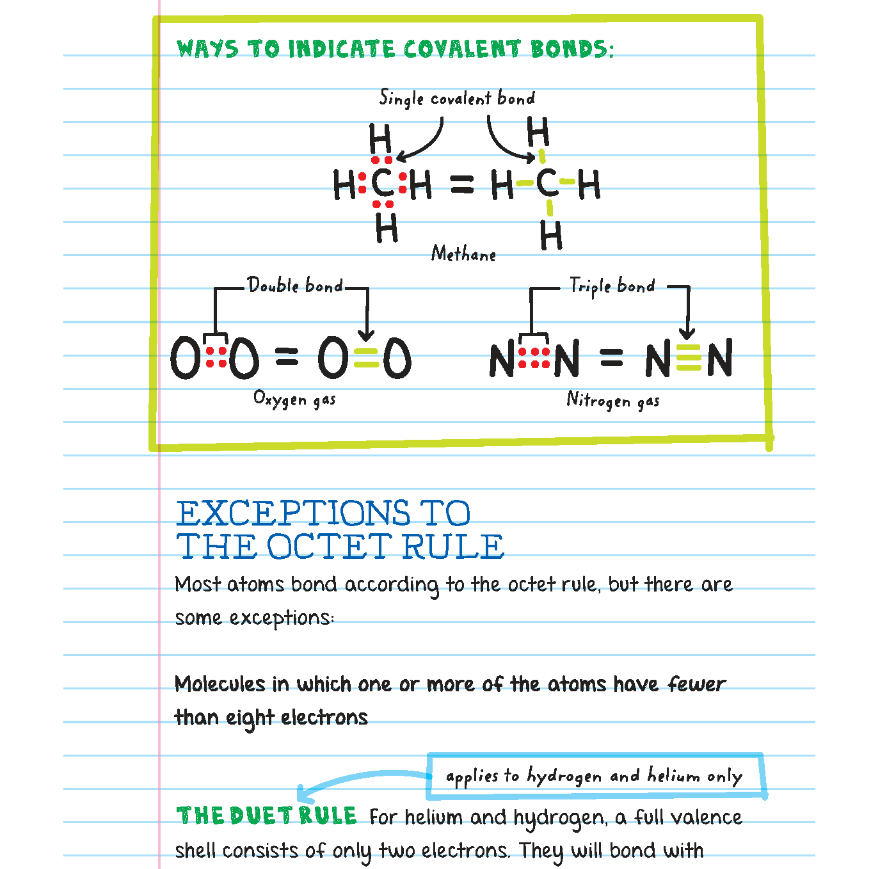 WAYS TO INDICATE COVALENT BONDS:
Single covalent bond
H H
H:C:H = H-C-H
H H
Methane
Double bond
Triple bond
O::O = O=O
N:::N = N≡N
Oxygen gas
Nitrogen gas
EXCEPTIONS TO
THE OCTET RULE
Most atoms bond according to the octet rule, but there are
some exceptions:
Molecules in which one or more of the atoms have fewer
than eight electrons
applies to hydrogen and helium only
THE DUET RULE For helium and hydrogen, a full valence
shell consists of only two electrons. They will bond with